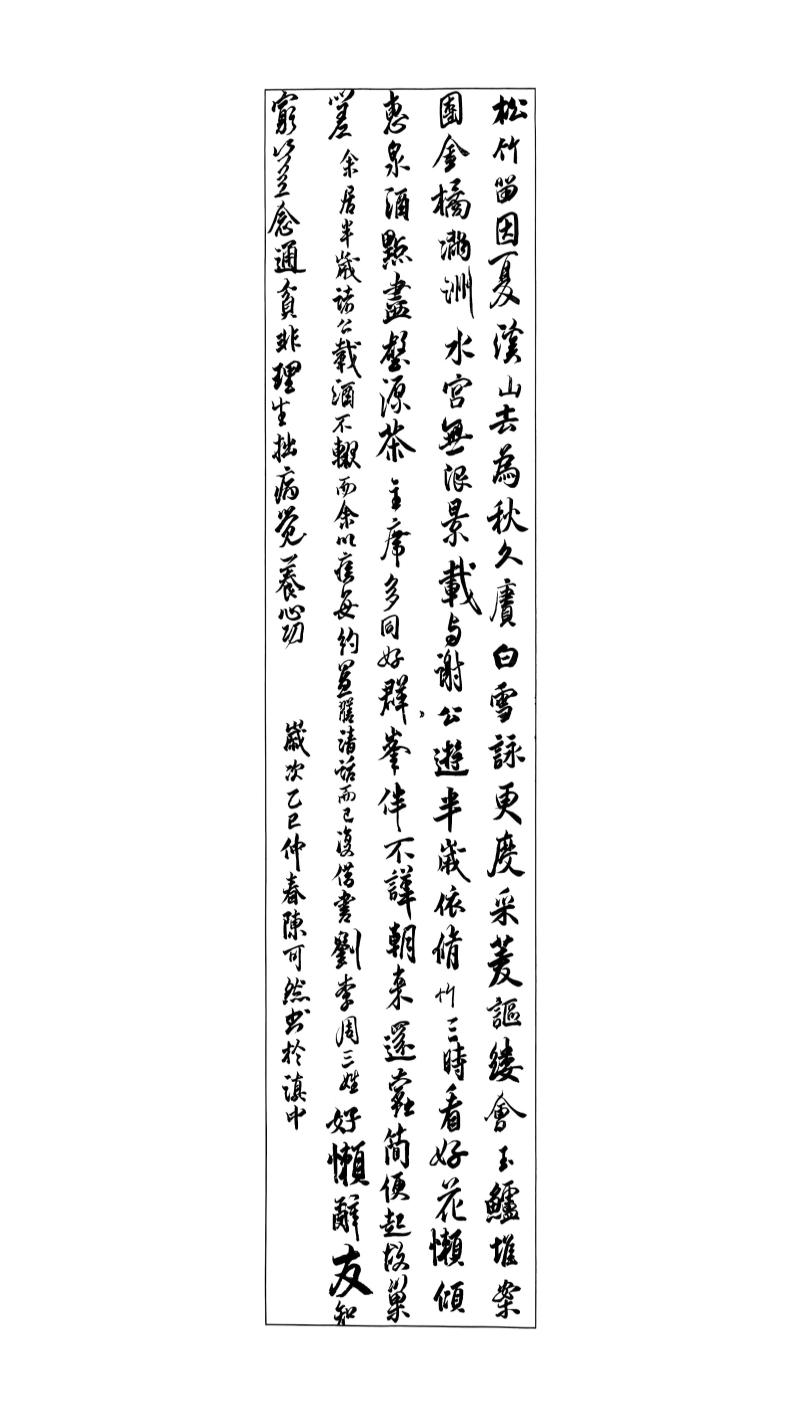 松竹留因夏溪山去為秋久賡白雪詠更度采菱謳縷會玉鱸堆案
團金橘滿洲水宮無限景載与謝公遊半歲依脩竹三時看好花懶傾
惠泉酒點盡壑源茶主席多同好群峯伴不譁朝来還蠹簡便起故巢
嗟余居半歲諸公載酒不輟而余以疾每約置膳清話而已復借書劉李周三姓好懶辭友知
窮豈念通貧非理生拙病覺養心功 歲次乙巳仲春陳可然书於滇中